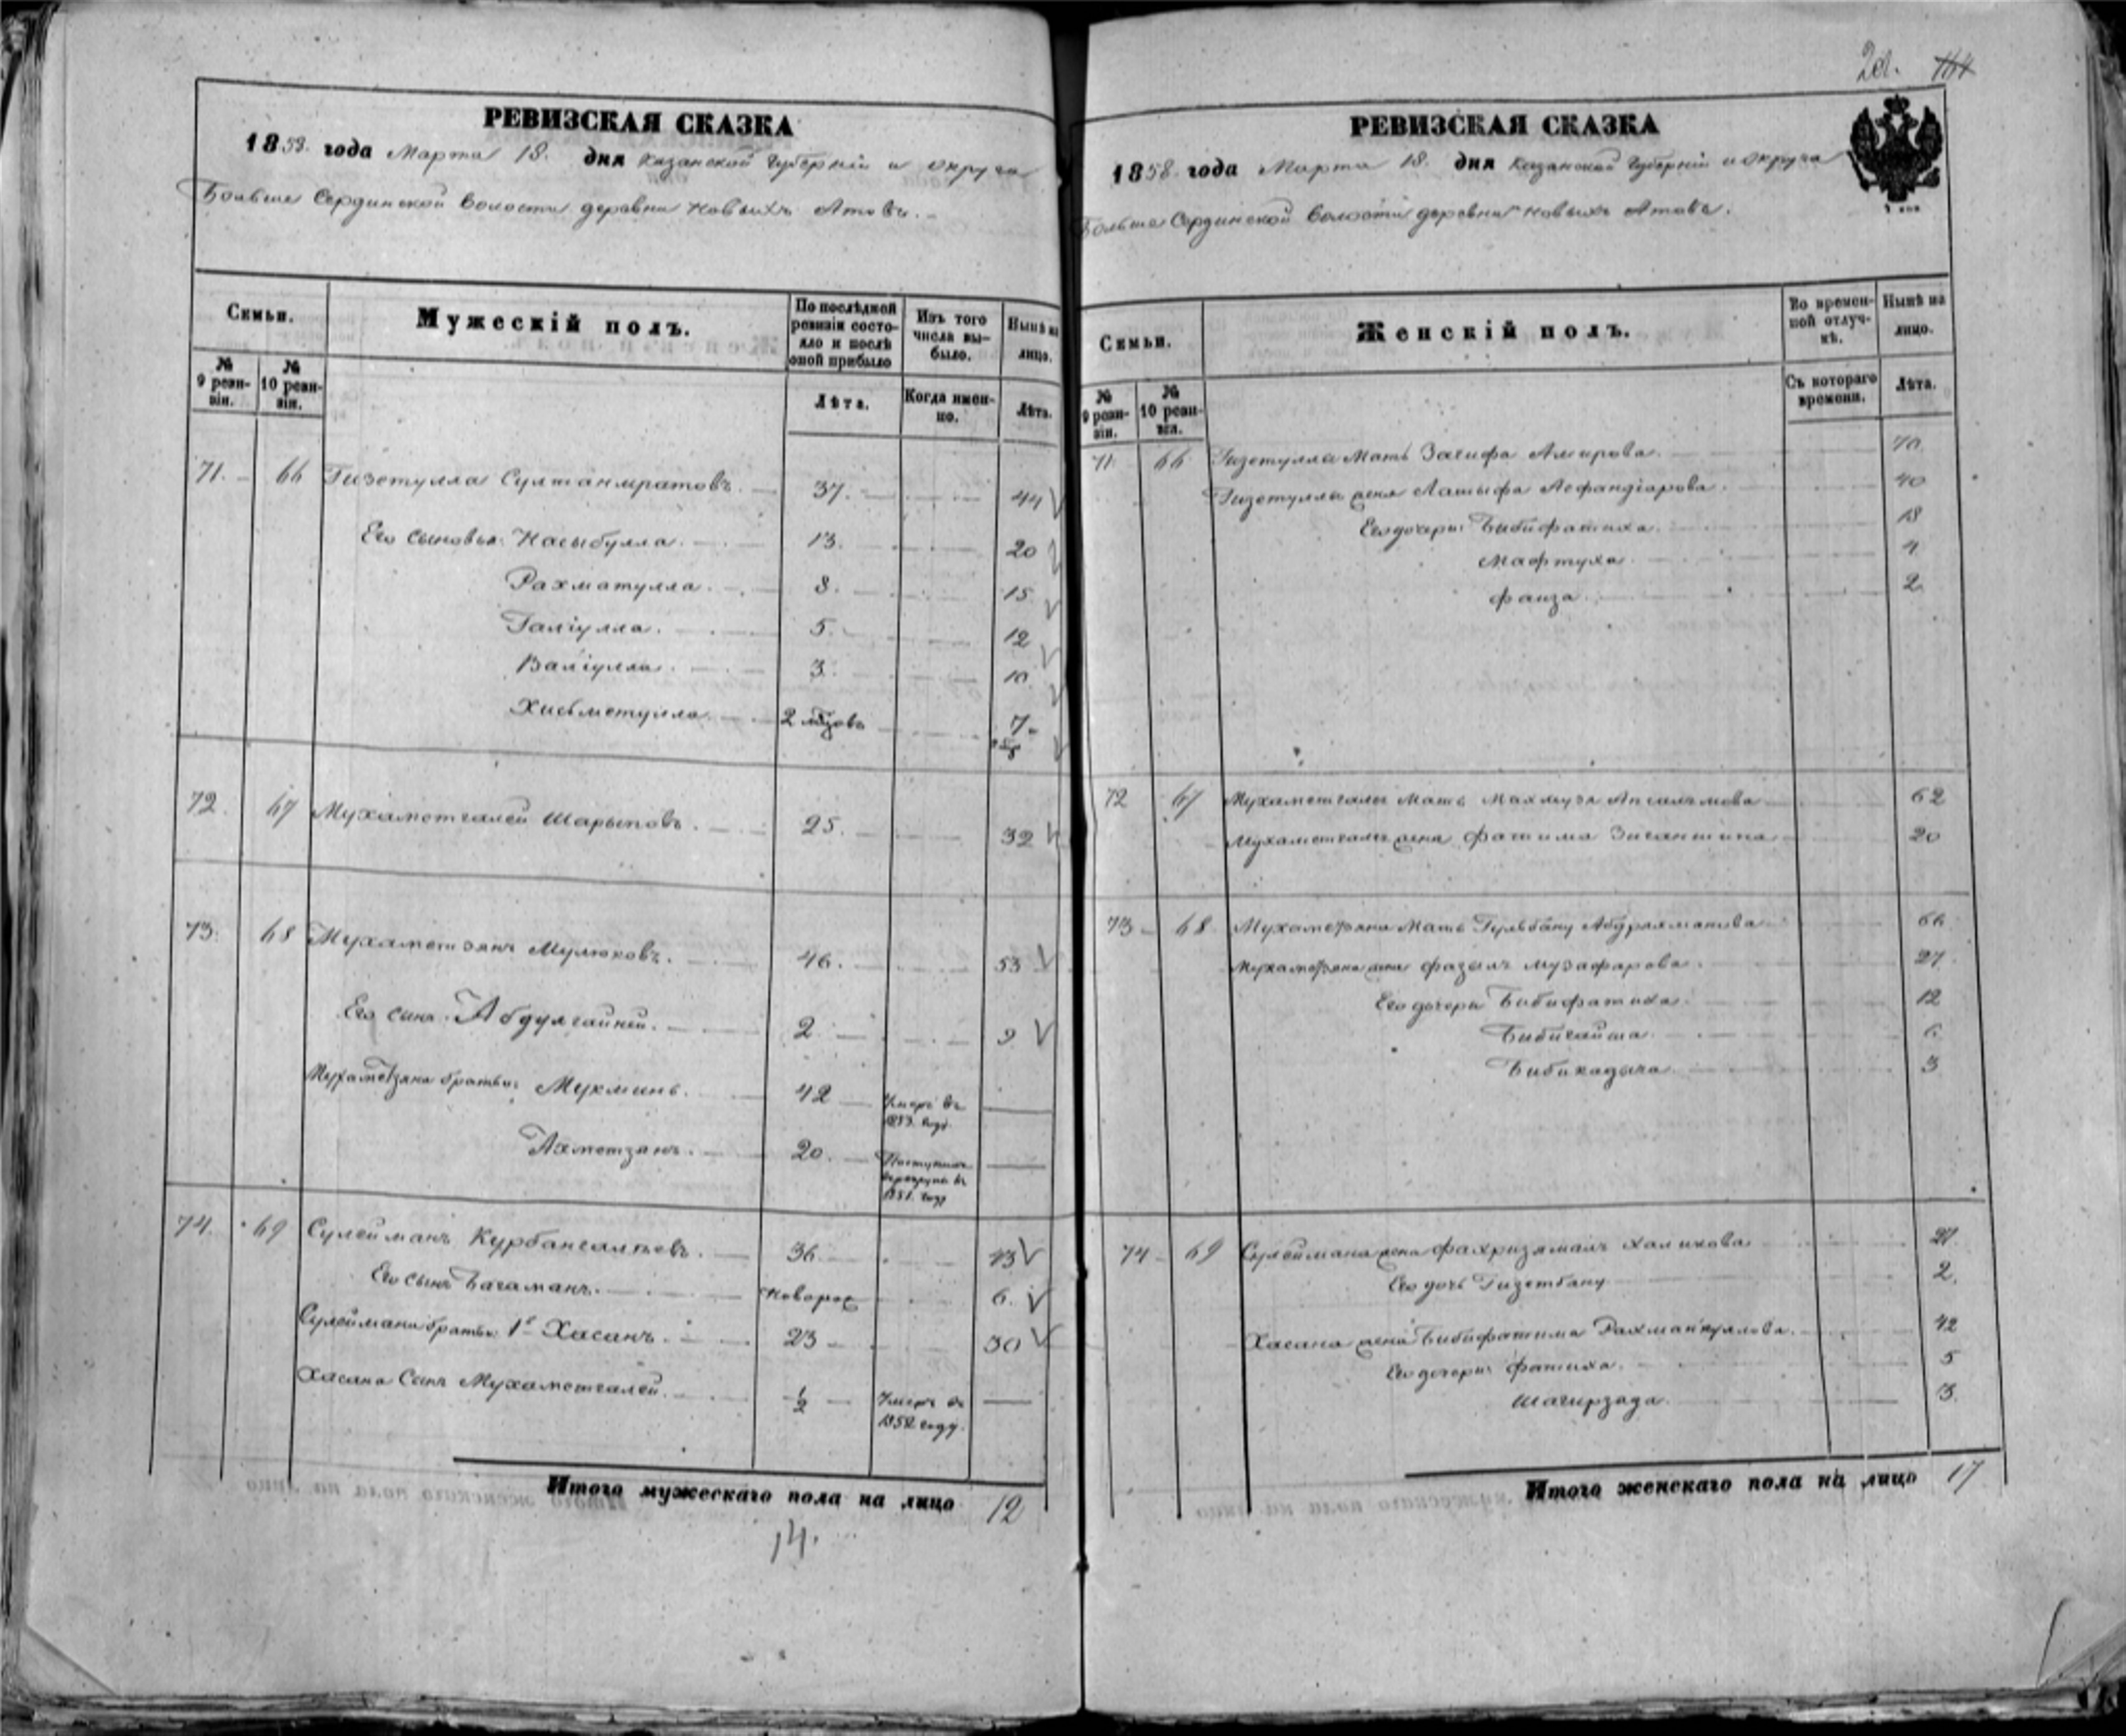 РЕВИЗСКАЯ СКАЗКА
1858. года Марта 18. дня Казанской Губерніи и округа
Больше Сердинской волости деревни Новыхъ Атовъ.
Семьи.
Мужескій полъ.
По послѣдней ревизіи состояло и послѣ оной прибыло
Изъ того числа выбыло.
Нынѣ на лицо.
№ 9 ревизіи.
№ 10 ревизіи.
Лѣта.
Когда именно.
Лѣта.
71. 66 Гизетулла Султанмратовъ. 37. 44
Его сыновья: Насыбулла. 13. 20
Рахматулла. 8. 15
Галіулла. 5. 12
Валіулла. 3. 10
Хисьметулла. 2 7
72. 67 Мухаметгалей Шарыповъ. 25. 32
73. 68 Мухаметзянъ Мулюковъ. 46. 53
Его сынъ: Абдулгайней. 2. 9
Мухаметзяна братья: Мухминъ. 42 Умеръ въ 1853. году.
Ахметзянъ. 20. Поступилъ въ рекруты въ 1851. году
74. 69 Сулейманъ Курбангалеевъ. 36. 43
Его сынъ Багаманъ. новорож 6.
Сулеймана братья: 1й Хасанъ. 23 30
Хасана Сынъ Мухаметгалей. 1/2 Умеръ въ 1852 году.
Итого мужескаго пола на лицо 12
14.
20. 164
РЕВИЗСКАЯ СКАЗКА
1858. года Марта 18. дня Казанской Губерніи и округа
Больше Сердинской волости деревни Новыхъ Атовъ.
Семьи.
Женскій полъ.
Во временной отлучкѣ.
Нынѣ на лицо.
№ 9 ревизіи.
№ 10 ревизіи.
Съ котораго времени.
Лѣта.
71. 66 Гизетуллы Мать Загифа Амирова. 70
Гизетуллы жена Латыфа Асфандіарова. 40
Его дочери: Бибифатиха. 18
Мафтуха. 4
Фаиза. 2
72 67 Мухаметгалея Мать Махмуза 62
Мухаметгалея жена Фатима Зиганшина 20
73 68 Мухаметзяна Мать Гульбану Абдрахманова 66
Мухаметзяна жена Фазыля Музафарова. 27
Его дочери Бибифатиха. 12
Бибигайша. 6
Бибихадыча. 3
74 69 Сулеймана жена Фахризямалъ Халикова 27.
Его дочь Гизетбану 2.
Хасана жена Бибифатима Рахманкулова. 42
Его дочери: Фатиха. 5
Шагирзада. 3.
Итого женскаго пола на лицо 17